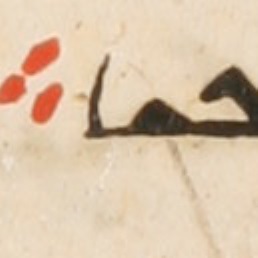 حما